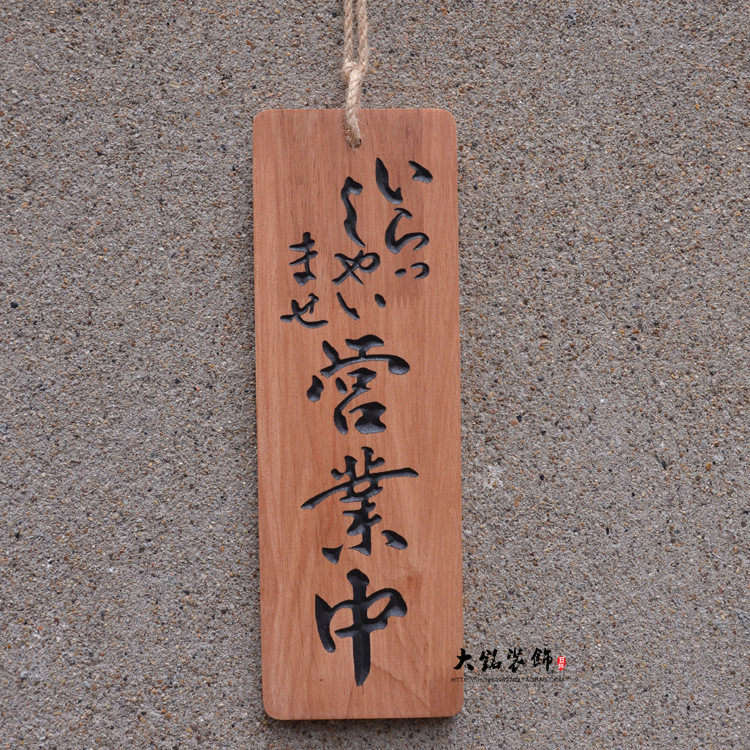 いらっ
しゃい
ませ
営業中
大銘装飾